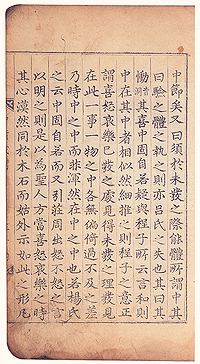 中節矣又曰須於未發之際能體所謂中其
曰驗之體之執之則亦呂氏之失也其曰其
慟其喜中固自若疑與程子所云言和則
中在其中者相似然細推之則程子之意正
謂喜怒哀樂已發之處見得未發之理發見
在此一事一物之中各無偏倚過不及之差
乃時中之中而非渾然在中之中也若楊氏
之云中固自若而又引莊周出怒不怒之言
以明之則是以為聖人方當喜怒哀樂之時
其心漠然同於木石而姑外示如此之形凡